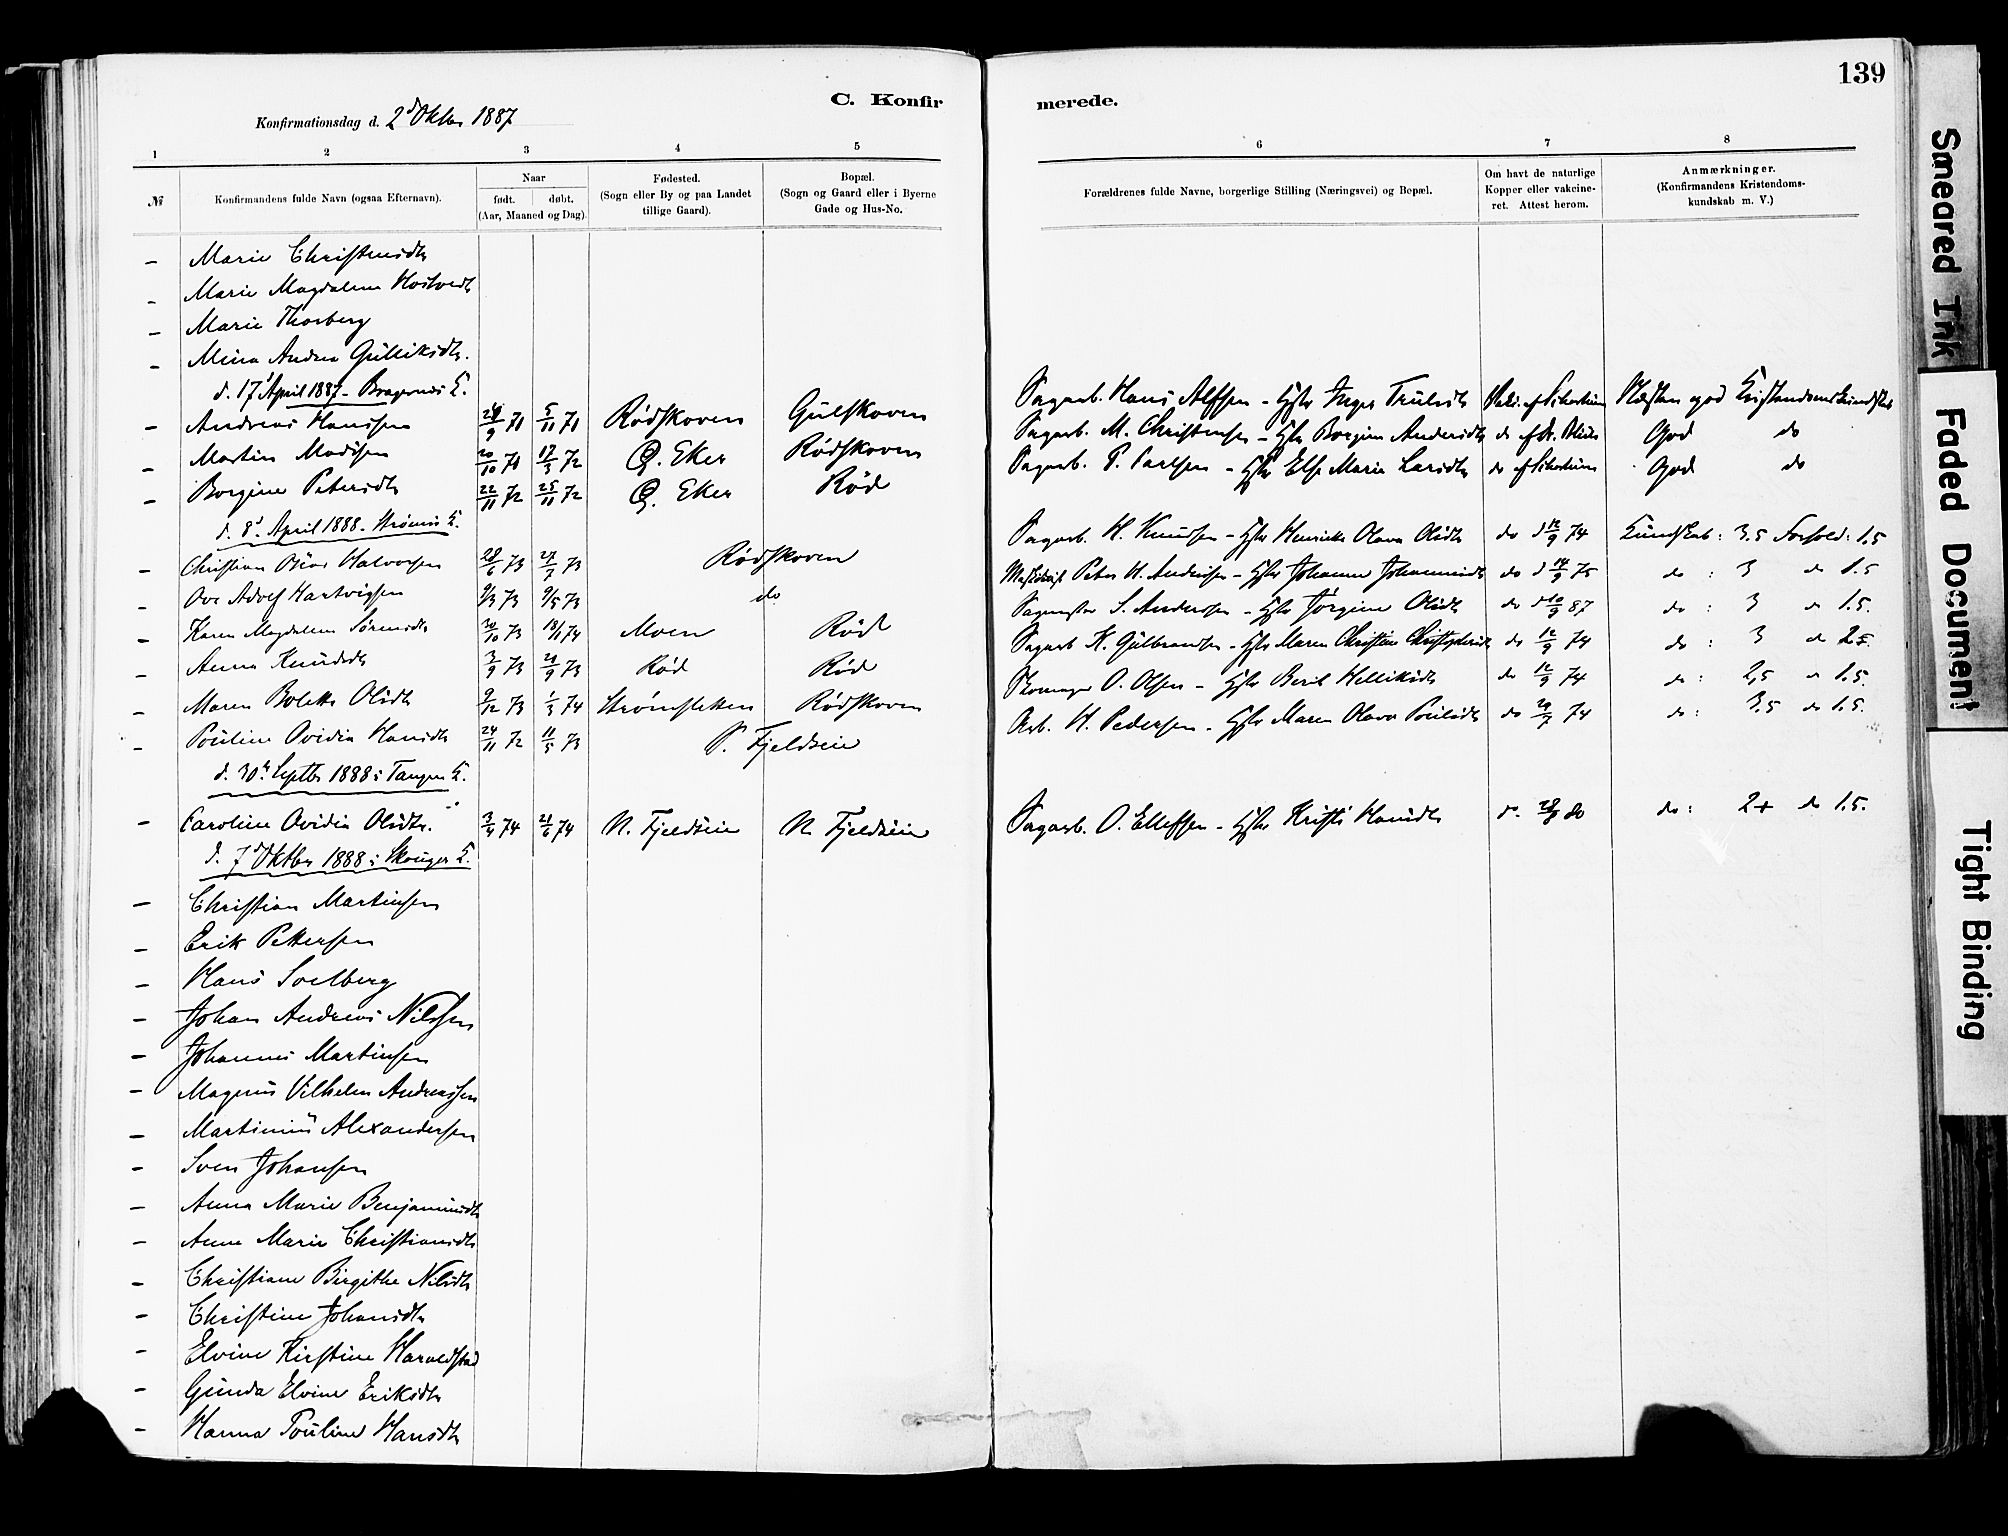 139
C. Konfirmerede.
Konfirmationsdag d. 2d Oktbr 1887
1 2 3 4 5 6 7 8
№
Konfirmandens fulde Navn (ogsaa Efternavn).
Naar
født. døbt.
(Aar, Maaned og Dag).
Fødested.
(Sogn eller By og paa Landet
tillige Gaard).
Bopæl.
(Sogn og Gaard eller i Byerne
Gade og Hus-No.
Forældrenes fulde Navne, borgerlige Stilling (Næringsvei) og Bopæl.
Om havt de naturlige
Kopper eller vakcine-
ret. Attest herom.
Anmærkninger.
(Konfirmandens Kristendoms-
kundskab m. V.)
– Marie Christensdtr
– Marie Magdalene Hostvedt
– Marie Thorberg
– Mina Andrea Gulliksdtr.
d. 17d April 1887 - Bragernes K.
– Andreas Hanssen 9 71 5/11 71 Rødskoven Gulskoven Sagarb. Hans Alfsen - Hstr Inger Trulsdtr Næsten god Kristendomskundskab
– Martin Madsen 20/10 71 17/3 72 Ø. Eker Rødskoven Sagarb. M. Christensen - Hstr Borgine Andersdtr do God do
– Borgine Petersdtr 22/11 72 25/11 72 Ø. Eker Rød Sagarb. P. Carlsen - Hstr Else Marie Larsdtr do God do
d. 8d April 1888 - Strømsø K.
– Christian Oskar Halvorsen 28/6 73 27/7 73 Rødskoven Sagarb. H. Knudsen - Hstr Henrikke Olava Olsdtr do d 12/9 74 Kundskab: 3.5 Forhold: 1.5
– Ove Adolf Hartvigsen 9/3 73 9/5 73 do Peter H. Andersen - Hstr Johanne Johannesdtr do d 14/9 75 do: 3 do 1.5
– Karen Magdalene Sørensdtr 30/10 73 18/1 74 Moen Rød Sagmester S. Andersen - Hstr Jørgine Olsdtr do d 10/9 87 do: 3 do 1.5.
– Anna Knudsdtr 3/9 73 21/9 73 Rød Rød Sagarb K. Gulbrandsen - Hstr Maren Christine Christophersdtr do 12/9 74 do: 3 do 2.5.
– Maren Bolette Olsdtr 9/12 73 1/3 74 Strømsletten Rødskoven Skomager O. Olsen - Hstr Berit Helliksdtr do 12/9 74 do: 2,5 do 1.5.
– Pouline Ovidia Hansdtr 24/11 72 11/5 73 S. Fjeldseie Arb. H. Pedersen - Hstr Maren Olava Poulsdtr do 74 do: 3.5 do 1.5.
d. 30te Septbr 1888 i Tangen K.
– Caroline Ovidia Olsdtr. 3/4 74 21/6 74 N. Fjeldseie N. Fjeldseie Sagarb. O. Ellefsen - Hstr Kristi Hansdtr do. 80 do: 2+ do 1.5.
d. 7d Oktbr 1888 i Skouger K.
– Christian Martinsen
– Erik Pettersen
– Hans Solberg
– Johan Andreas Nilssen
– Johannes Martinsen
– Magnus Vilhelm Andreassen
– Martinius Alexandersen
– Sven Johansen
– Anna Marie Benjaminsdtr
– Anne Marie Christiansdtr
– Christiane Birgithe Nilsdtr
– Christine Johansdtr
– Elvine Kirstine Haraldstad
– Gunda Elvine Eriksdtr
– Hanna Pouline Hansdtr
Smeared Ink
Faded Document
Tight Binding